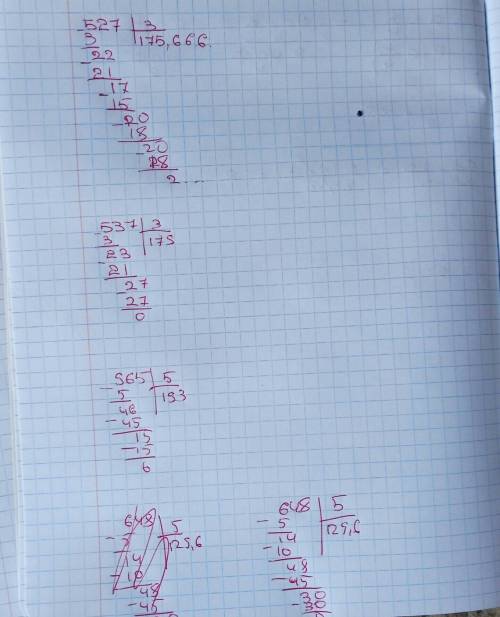 - 527 | 3
3 | 175,666.
- 22
21
- 17
15
- 20
18
- 20
18
2...
- 537 | 3
3 | 179
- 23
21
- 27
27
0
- 965 | 5
5 | 193
46
- 45
15
- 15
0
648 | 5
- 5 | 129,6
14
- 10
48
- 45
- 648 | 5
5 | 129,6
14
- 10
48
- 45
30
- 30